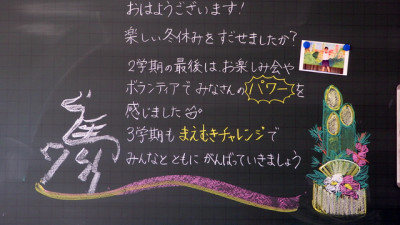 おはようございます!
楽しい冬休みをすごせましたか?
2学期の最後は、お楽しみ会や
ボランティアで みなさんの パワー を
感じました
3学期も まえむきチャレンジで
みんなとともに がんばっていきましょう